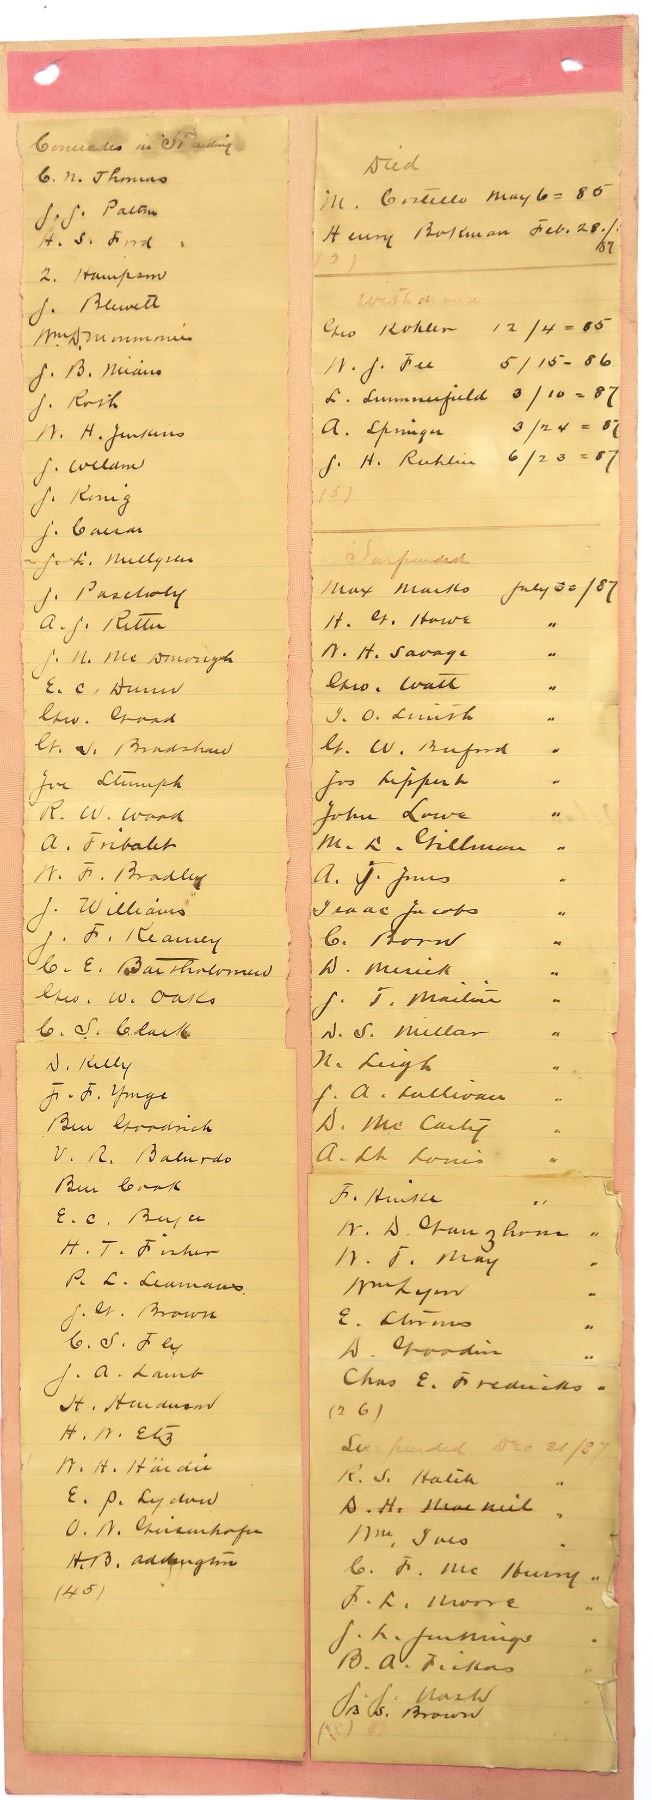 Comrades in Standing
C. N. Thomas
J. J. Patton
H. S. Ford
Z. Hampson
J. Blewett
Wm D. Monmonier
J. B. Means
J. Roth
W. H. Jenkins
J. Weldon
J. Konig
J. Caesar
J. L. Millgren
J. Pascholy
A. J. Ritter
J. N. Mc Donough
E. C. Dunn
Geo. Good
G. S. Bradshaw
Joe Stumph
R. W. Wood
A. Fribolet
W. F. Bradley
J. Williams
J. F. Kearney
C. E. Bartholomew
Geo. W. Oaks
C. S. Clark
D. Kelly
F. F. Yonge
Ben Goodrich
V. R.
Ben Cook
E. C.
H. T. Fisher
P. L. Leamans
J. G. Brown
C. S. Fly
J. A. Lamb
H. Henderson
H. W. Etz
W. H. Hardie
E. P. Lydon
O. W. Geisenhofer
H. B. Addington
(45)
Died
M. Costello May 6 = 85
Henry Bokman Feb. 28./87
(2)
Withdrawn
Geo Kohler 12/4 = 85
W. J. Fee 5/15 - 86
L. Summerfield 3/10 = 87
A. Springer 3/24 = 87
J. H. Ruhlin 6/23 = 87
(5)
Suspended
Max Marks July 30/87
H. G. Howe "
W. H. Savage "
Geo. Watt "
T. O. Smith "
G. W. Buford "
Jos Lippert "
John Lowe "
M. L. Gillman "
A. J. Jones "
Isaac Jacobs "
C. Born "
D. Mesick "
J. T. "
D. S. Millar "
N. Leigh "
J. A. Sullivan "
D. Mc Carty "
A. St Louis "
F. Hinke "
W. D. "
W. T. May "
Wm Lyon "
E. Storms "
D. Goodin "
Chas E. Fredericks "
(26)
Suspended Dec 31/87
R. S. Hatch "
D. H. Mac Neil "
Wm. Ives "
C. F. Mc Hurry "
F. L. Moore "
J. L. Jennings "
B. A. Fickas "
J. J. Nash "
B S. Brown